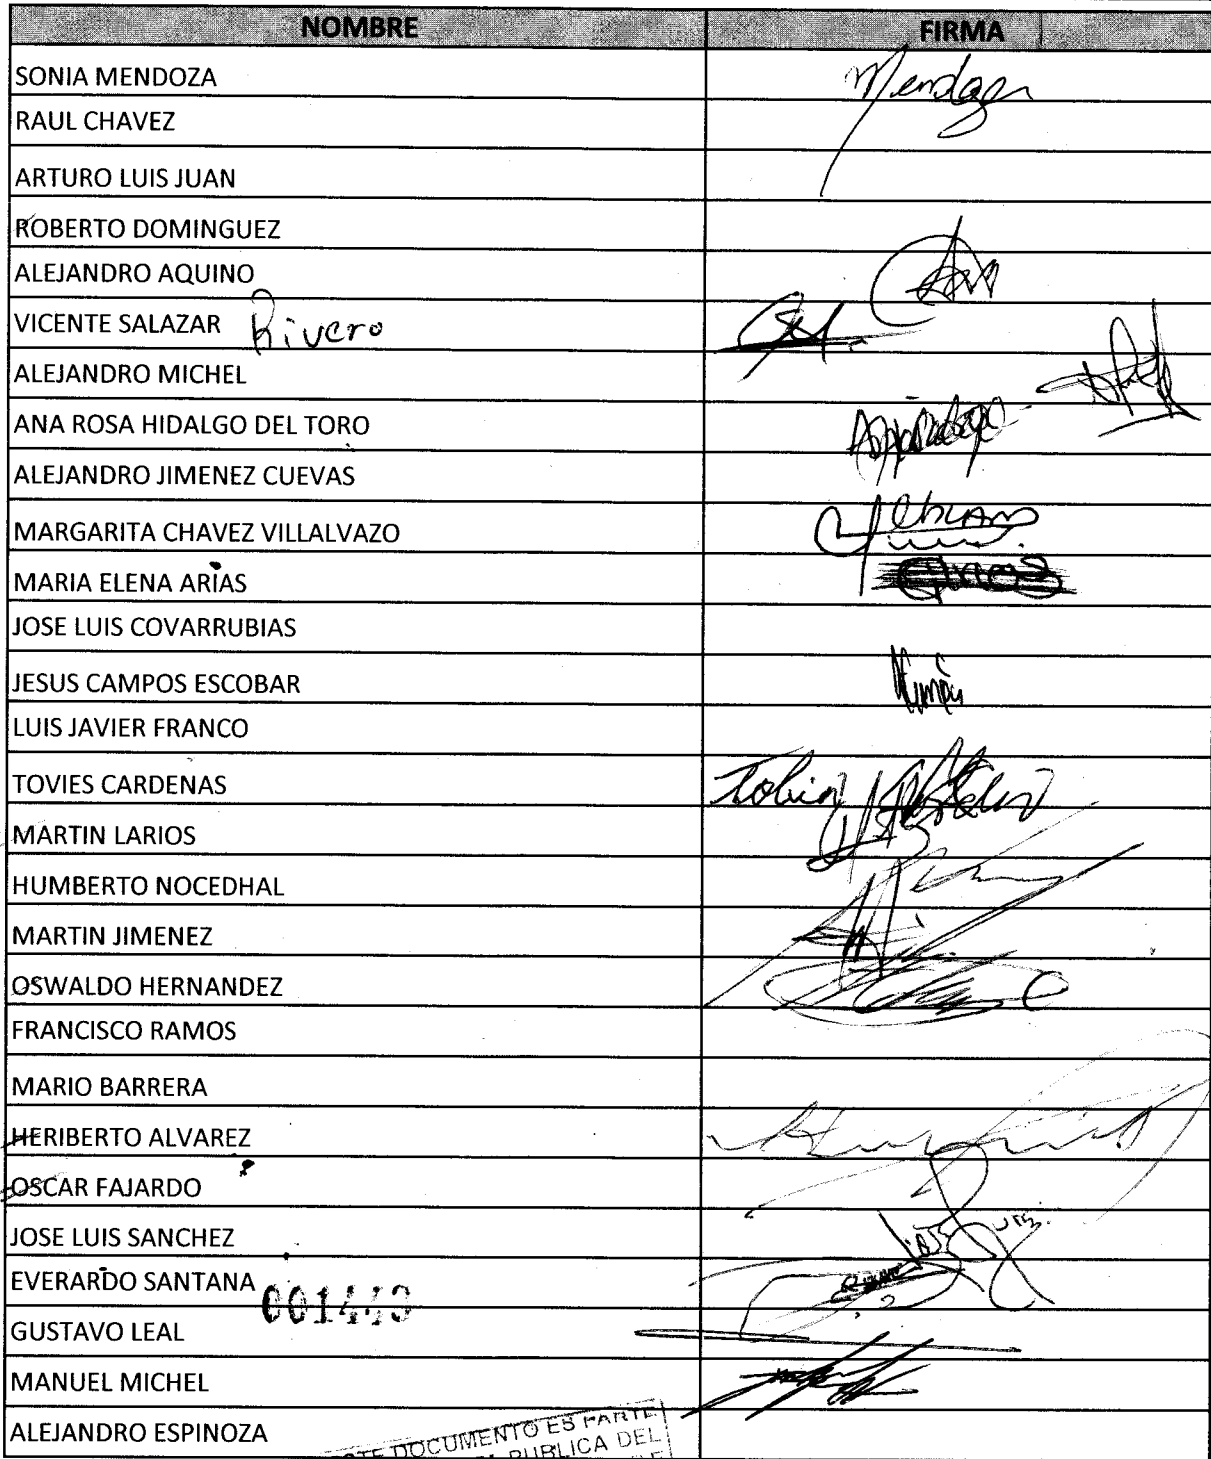 NOMBRE FIRMA
SONIA MENDOZA Mendoza
RAUL CHAVEZ
ARTURO LUIS JUAN
ROBERTO DOMINGUEZ
ALEJANDRO AQUINO
VICENTE SALAZAR Rivero
ALEJANDRO MICHEL
ANA ROSA HIDALGO DEL TORO
ALEJANDRO JIMENEZ CUEVAS
MARGARITA CHAVEZ VILLALVAZO
MARIA ELENA ARIAS
JOSE LUIS COVARRUBIAS
JESUS CAMPOS ESCOBAR
LUIS JAVIER FRANCO
TOVIES CARDENAS
MARTIN LARIOS
HUMBERTO NOCEDHAL
MARTIN JIMENEZ
OSWALDO HERNANDEZ
FRANCISCO RAMOS
MARIO BARRERA
HERIBERTO ALVAREZ
OSCAR FAJARDO
JOSE LUIS SANCHEZ
EVERARDO SANTANA
001443
GUSTAVO LEAL
MANUEL MICHEL
ALEJANDRO ESPINOZA
DOCUMENTO ES PARTE
PUBLICA DEL